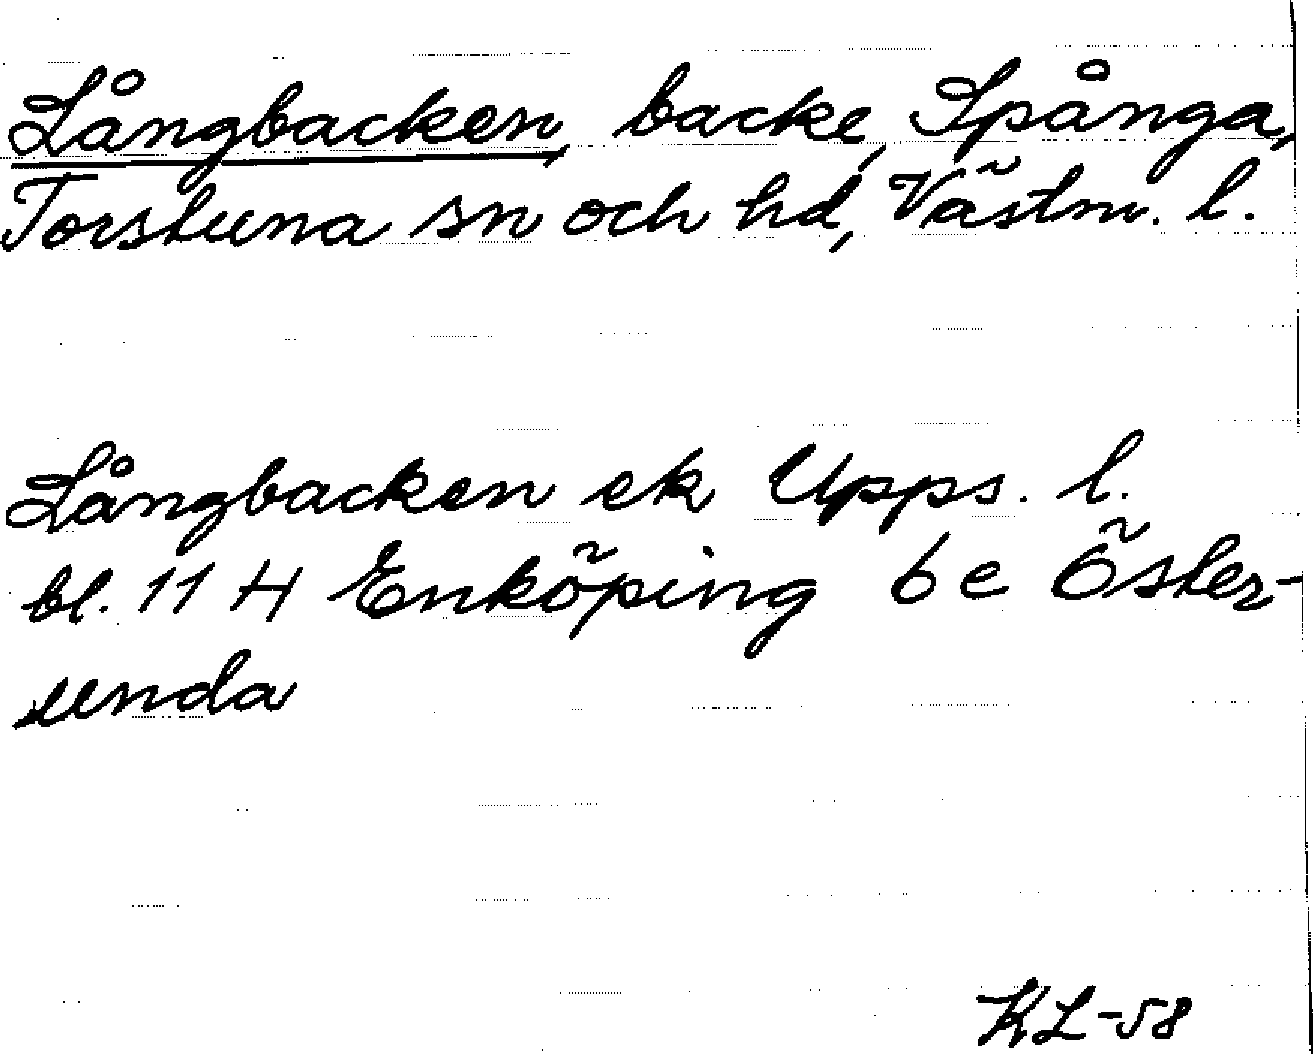 Långbacken, backe, Spånga,
Torstuna sn och hd, Västm. l.
Långbacken ek Upps. l.
bl. 11 H Enköping 6 e Öster-
unda
KL-58